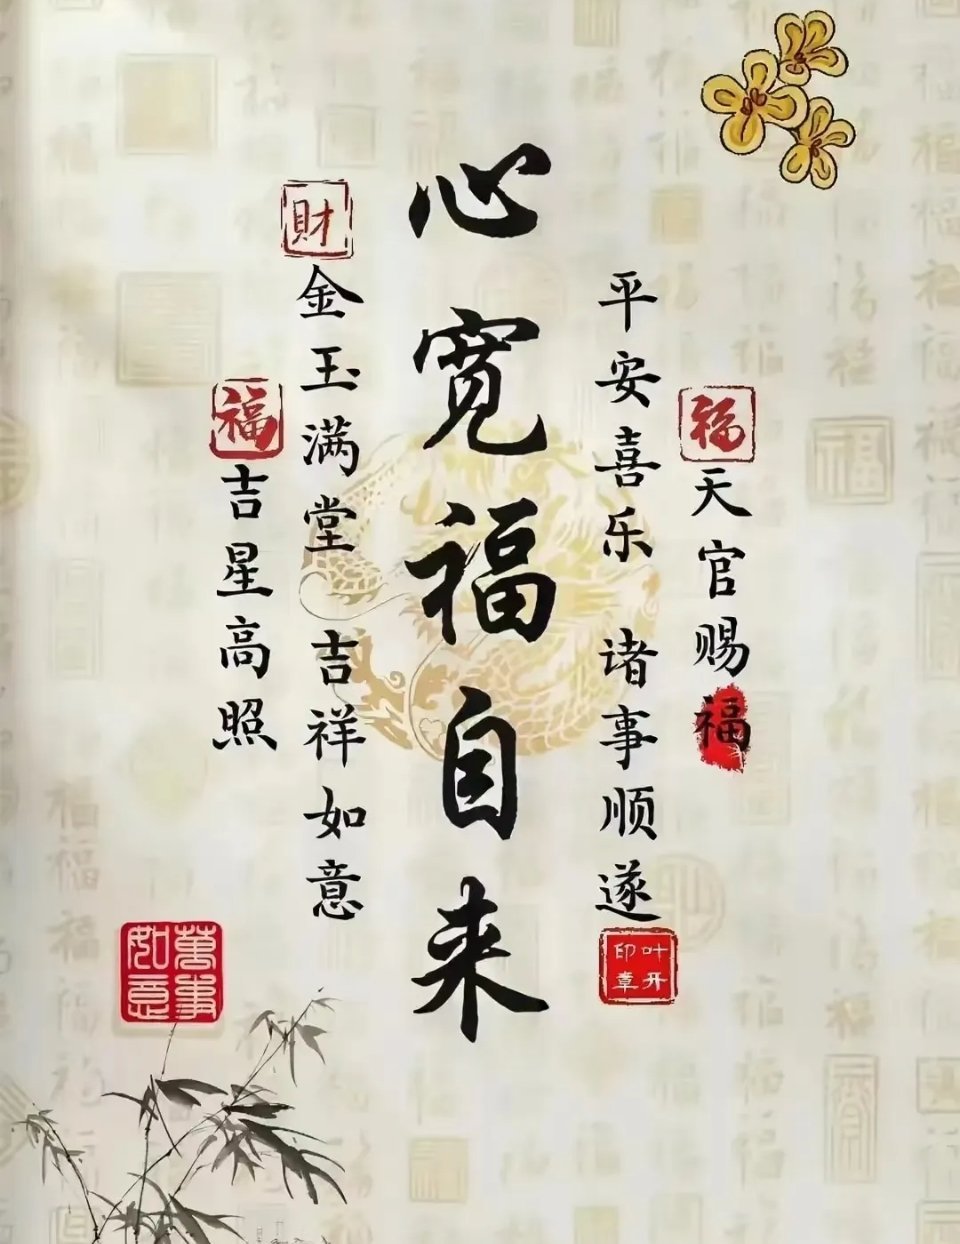 福
天官赐福
平安喜乐 诸事顺遂
叶开印章
心宽福自来
财
金玉满堂 吉祥如意
福
吉星高照
萬事如意